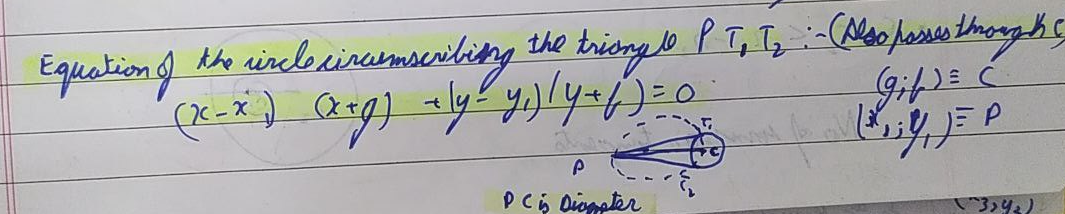 Equation of the circle circumscribing the triangle P T₁ T₂ :- (Also passes through C)
(x - x₁) (x+g) + (y - y₁) (y+f) = 0
(g;f) ≡ C
(x₁; y₁) ≡ P
T₁
C
P
T₂
PC is Diameter
3, y₂)